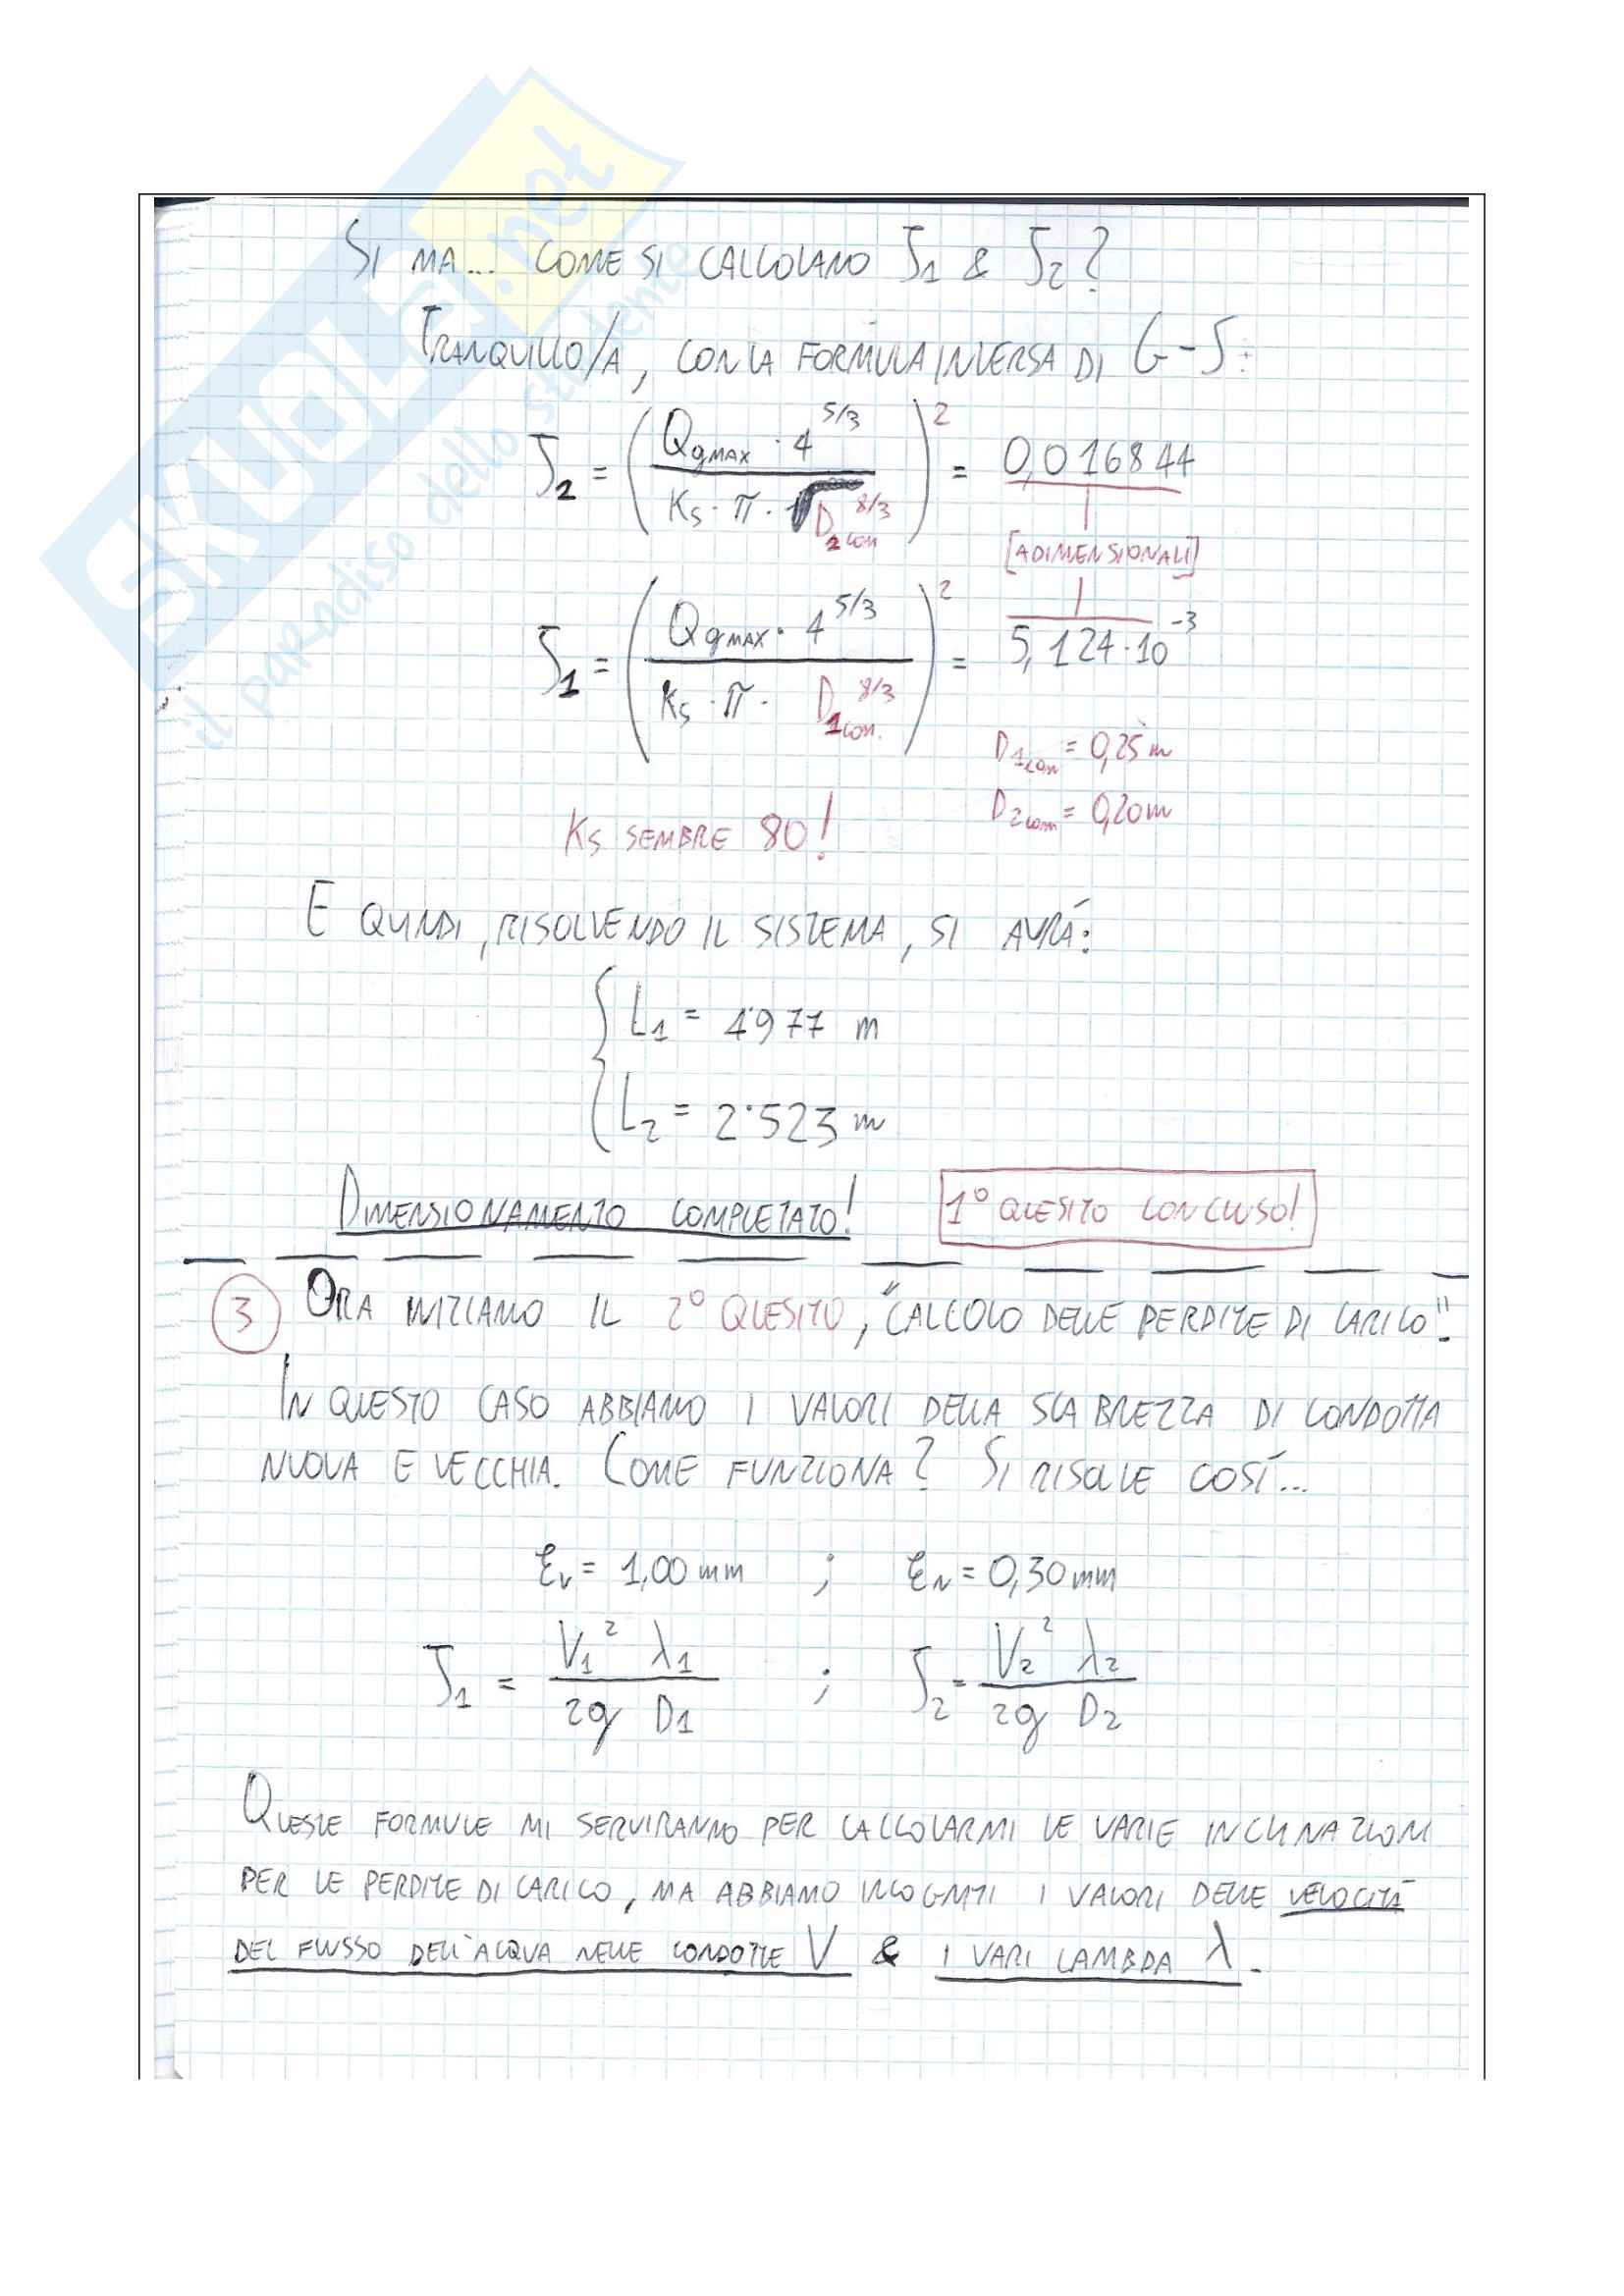 SKUOLA.net
il paradiso dello studente
SI MA... COME SI CALCOLANO J1 & J2?
TRANQUILLO/A, CON LA FORMULA INVERSA DI G-S:
J2 = (QgMAX · 4^5/3 / Ks · π · D2com^8/3)^2 = 0,016844
[ADIMENSIONALI]
J1 = (QgMAX · 4^5/3 / Ks · π · D1com.^8/3)^2 = 5,124·10^-3
D1com = 0,25 m
D2com = 0,20 m
Ks SEMBRE 80!
E QUINDI, RISOLVENDO IL SISTEMA, SI AVRÁ:
{ L1 = 4'977 m
L2 = 2'523 m
DIMENSIONAMENTO COMPLETATO!
1° QUESITO CONCLUSO!
3 ORA INIZIAMO IL 2° QUESITO, "CALCOLO DELLE PERDITE DI CARICO".
IN QUESTO CASO ABBIAMO I VALORI DELLA SCABREZZA DI CONDOTTA
NUOVA E VECCHIA. COME FUNZIONA? SI RISOLVE COSÍ...
εv = 1,00 mm ; εN = 0,30 mm
J1 = V1² λ1 / 2g D1 ; J2 = V2² λ2 / 2g D2
QUESTE FORMULE MI SERVIRANNO PER CALCOLARMI LE VARIE INCLINAZIONI
PER LE PERDITE DI CARICO, MA ABBIAMO INCOGNITI I VALORI DELLE VELOCITÁ
DEL FLUSSO DELL'ACQUA NELLE CONDOTTE V & I VARI LAMBDA λ.